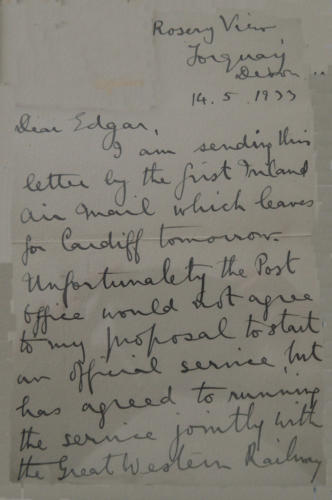 Rosery View,
Torquay,
Devon.
14.5.1933
Dear Edgar,
I am sending this
letter by the first Inland
Air Mail which leaves
for Cardiff tomorrow.
Unfortunately the Post
office would not agree
to my proposal to start
an official service, but
has agreed to running
the service jointly with
the Great Western Railway